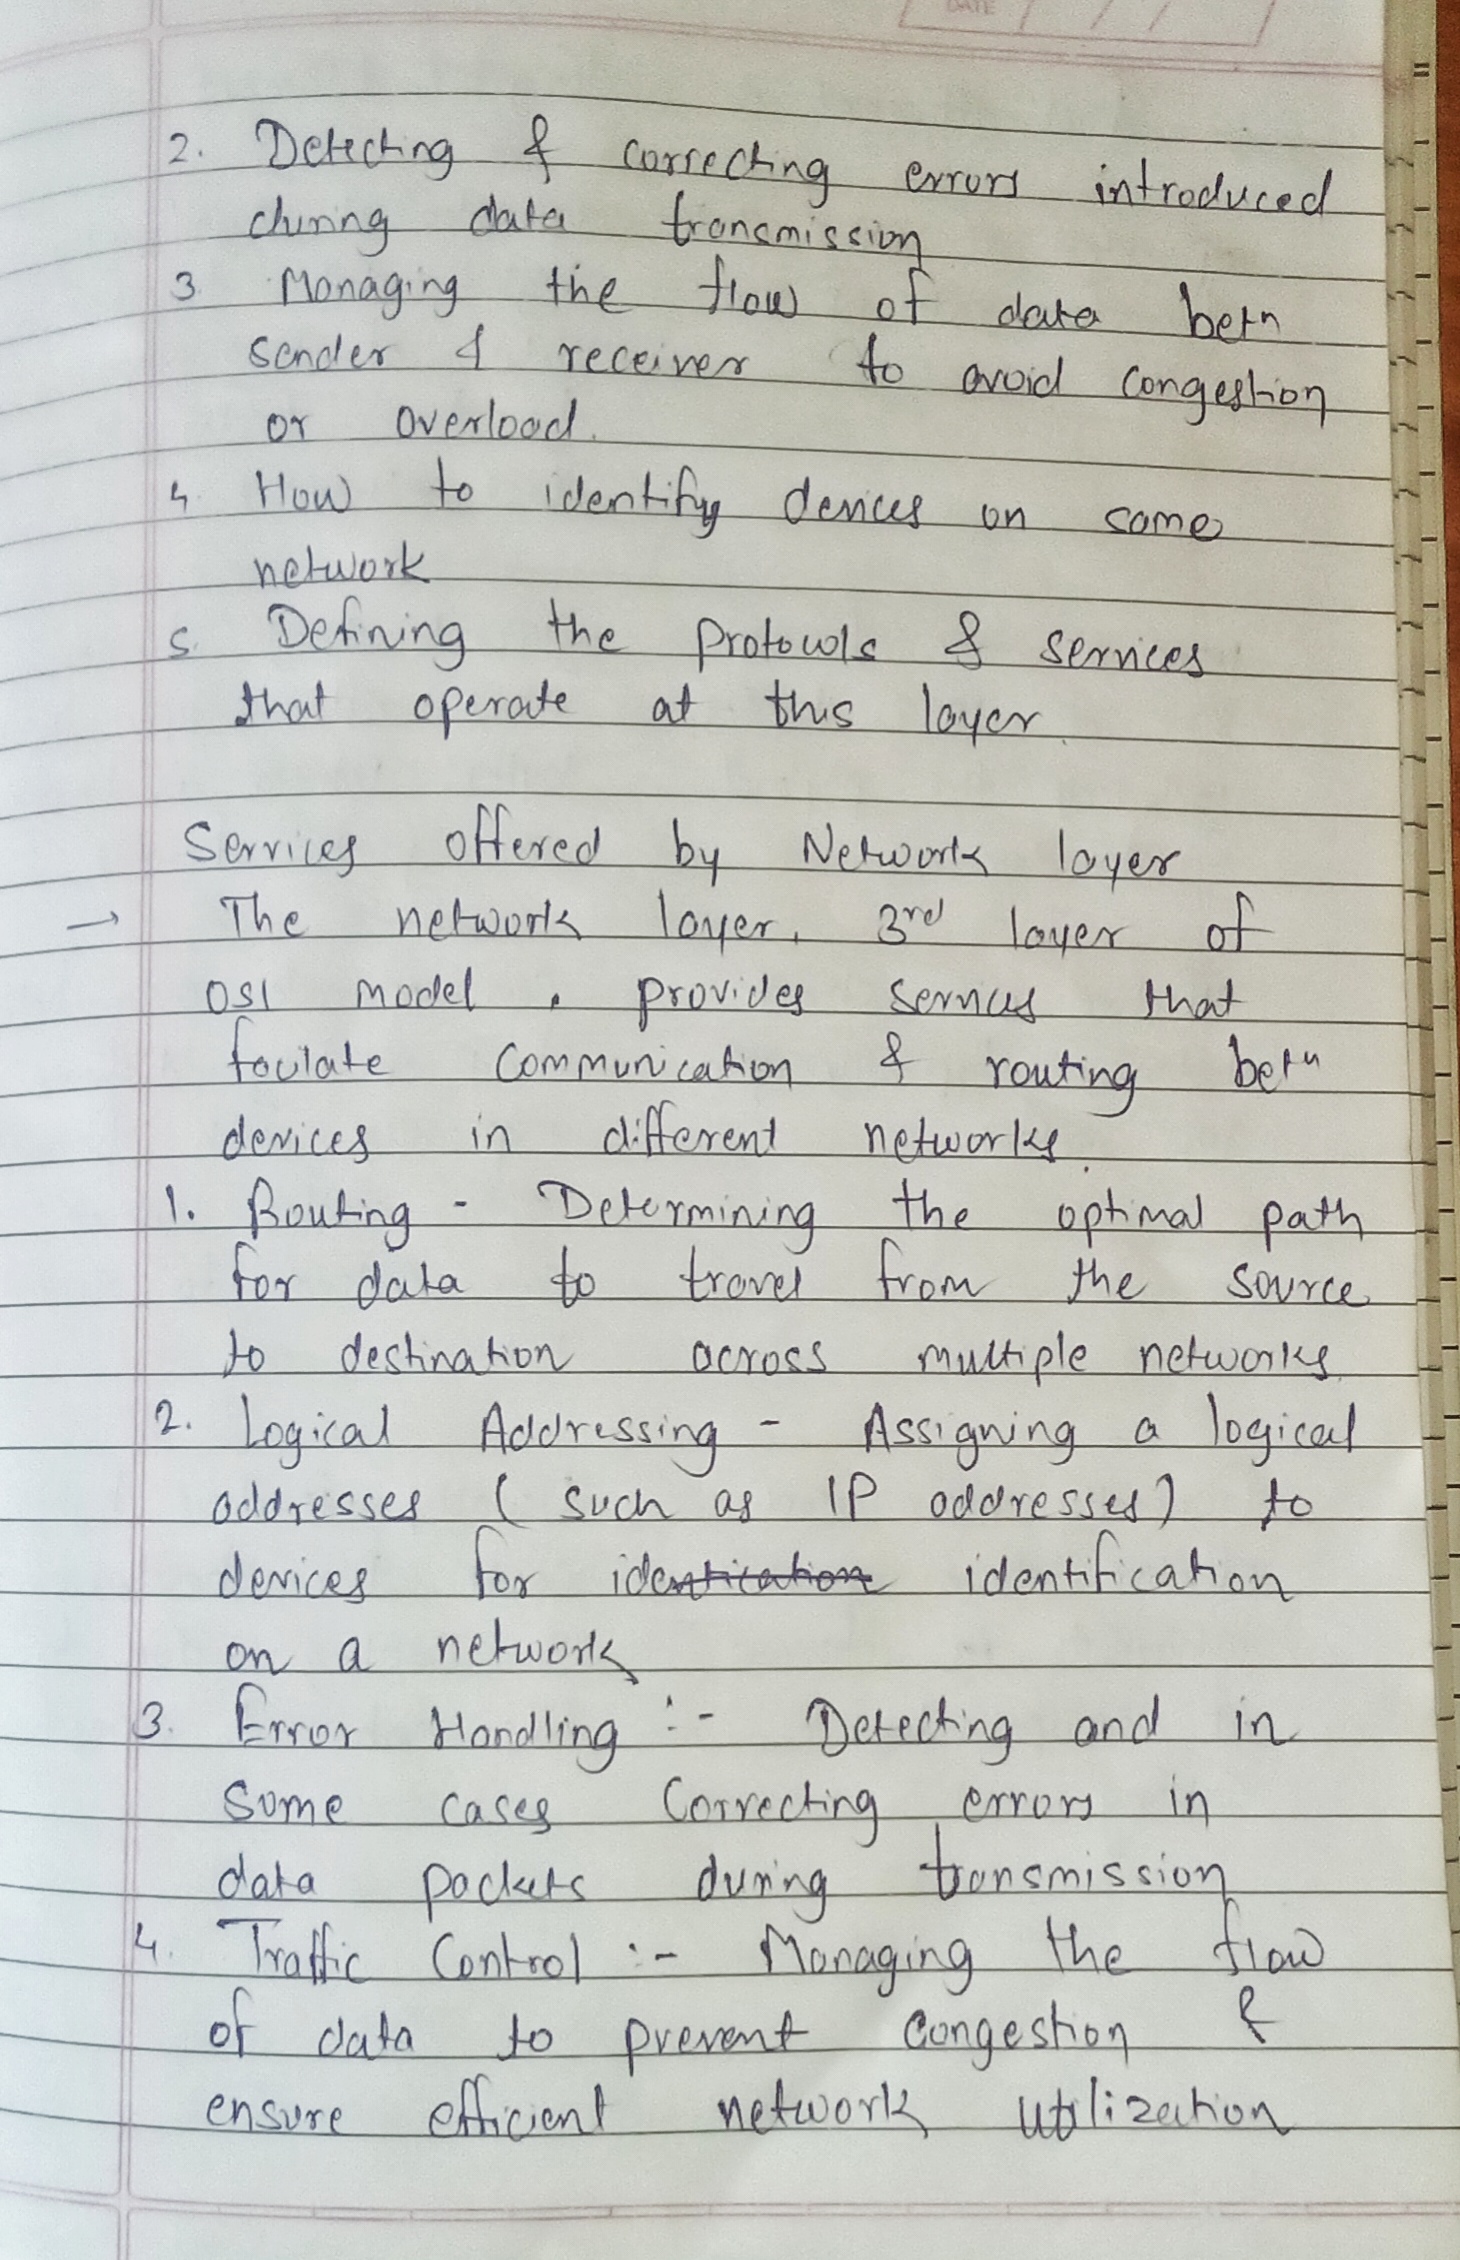 DATE / / /
2. Detecting & correcting errors introduced
during data transmission
3. Managing the flow of data betn
sender & receiver to avoid congestion
or overload.
4. How to identify devices on same
network
5. Defining the protocols & services
that operate at this layer.
Services offered by Network layer
→ The network layer, 3rd layer of
OSI model, provides services that
faciliate communication & routing betn
devices in different networks.
1. Routing - Determining the optimal path
for data to travel from the source
to destination across multiple networks.
2. Logical Addressing - Assigning a logical
addresses (such as IP addresses) to
devices for identication identification
on a network
3. Error Handling :- Detecting and in
some cases correcting errors in
data packets during transmission
4. Traffic Control :- Managing the flow
of data to prevent congestion &
ensure efficient network utilization